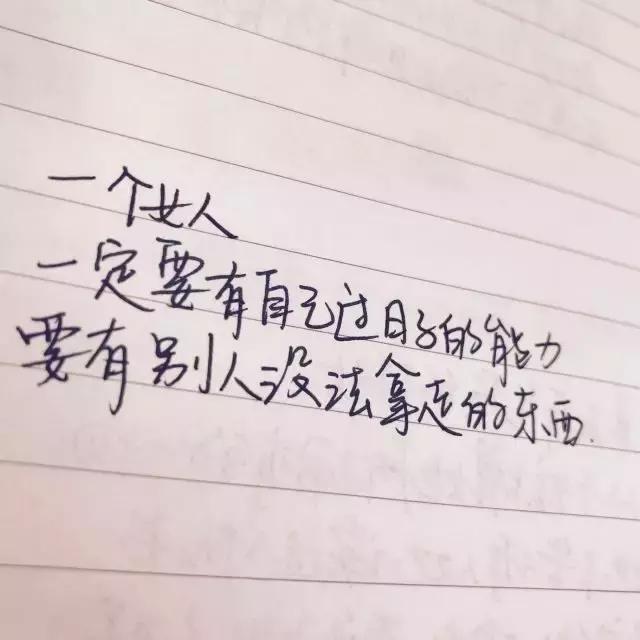 一个女人
一定要有自己过日子的能力
要有别人没法拿走的东西.